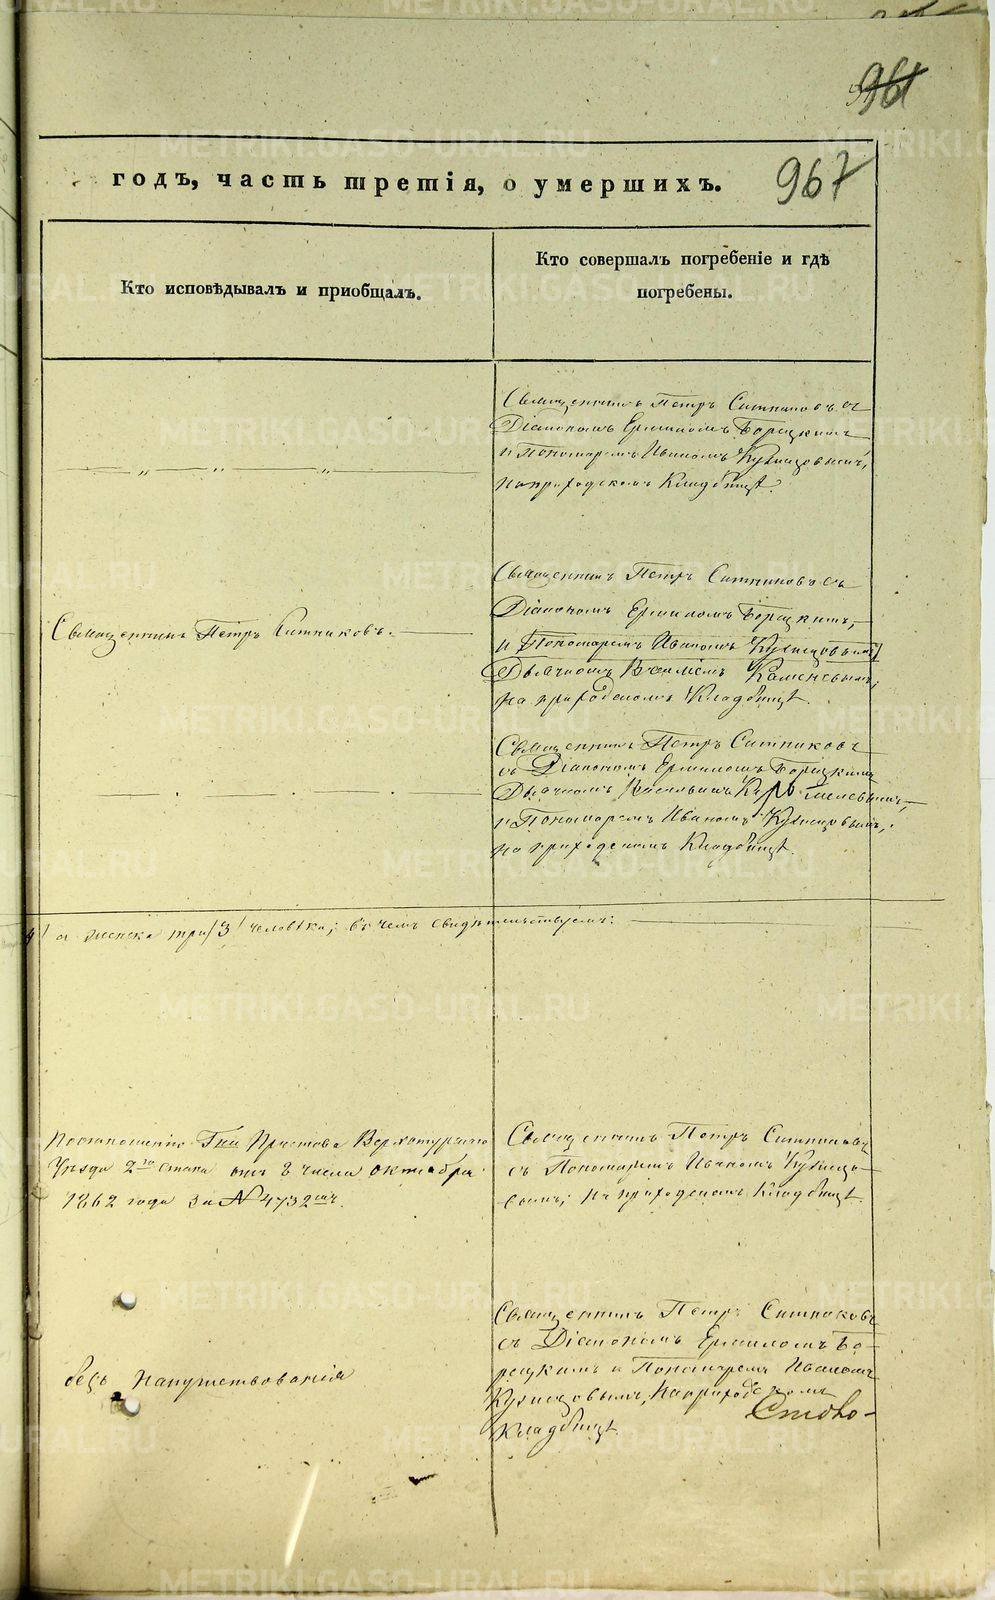 961
967
годъ, часть третія, о умершихъ.
Кто исповѣдывалъ и приобщалъ.
Кто совершалъ погребеніе и гдѣ
погребены.
Священникъ Петръ Ситниковъ съ
Діакономъ Ермиломъ Борецкимъ
и Пономаремъ Иваномъ Кузнецовымъ,
на приходскомъ Кладбищѣ.
Священникъ Петръ Ситниковъ.
Священникъ Петръ Ситниковъ съ
Діакономъ Ермиломъ Борецкимъ,
и Пономаремъ Иваномъ Кузнецовымъ
Дьячкомъ Каменевымъ,
на приходскомъ Кладбищѣ.
Священникъ Петръ Ситниковъ
съ Діакономъ Ермиломъ Борецкимъ
Дьячкомъ
и Пономаремъ Иваномъ Кузнецовымъ,
на приходскомъ Кладбищѣ.
а женска три /3/ человѣка; въ чемъ свидѣтельствуемъ:
Пристава Верхотурскаго
Уѣзда 2го стана отъ 2 числа октября
1862 года за № 4732мъ.
Священникъ Петръ Ситниковъ
съ Пономаремъ Иваномъ Кузнецо-
вымъ; на приходскомъ Кладбищѣ.
безъ напутствованія
Священникъ Петръ Ситниковъ
съ Діакономъ Ермиломъ Бо-
рецкимъ и Пономаремъ Иваномъ
Кузнецовымъ, на приходскомъ
Кладбищѣ.
METRIKI.GASO-URAL.RU